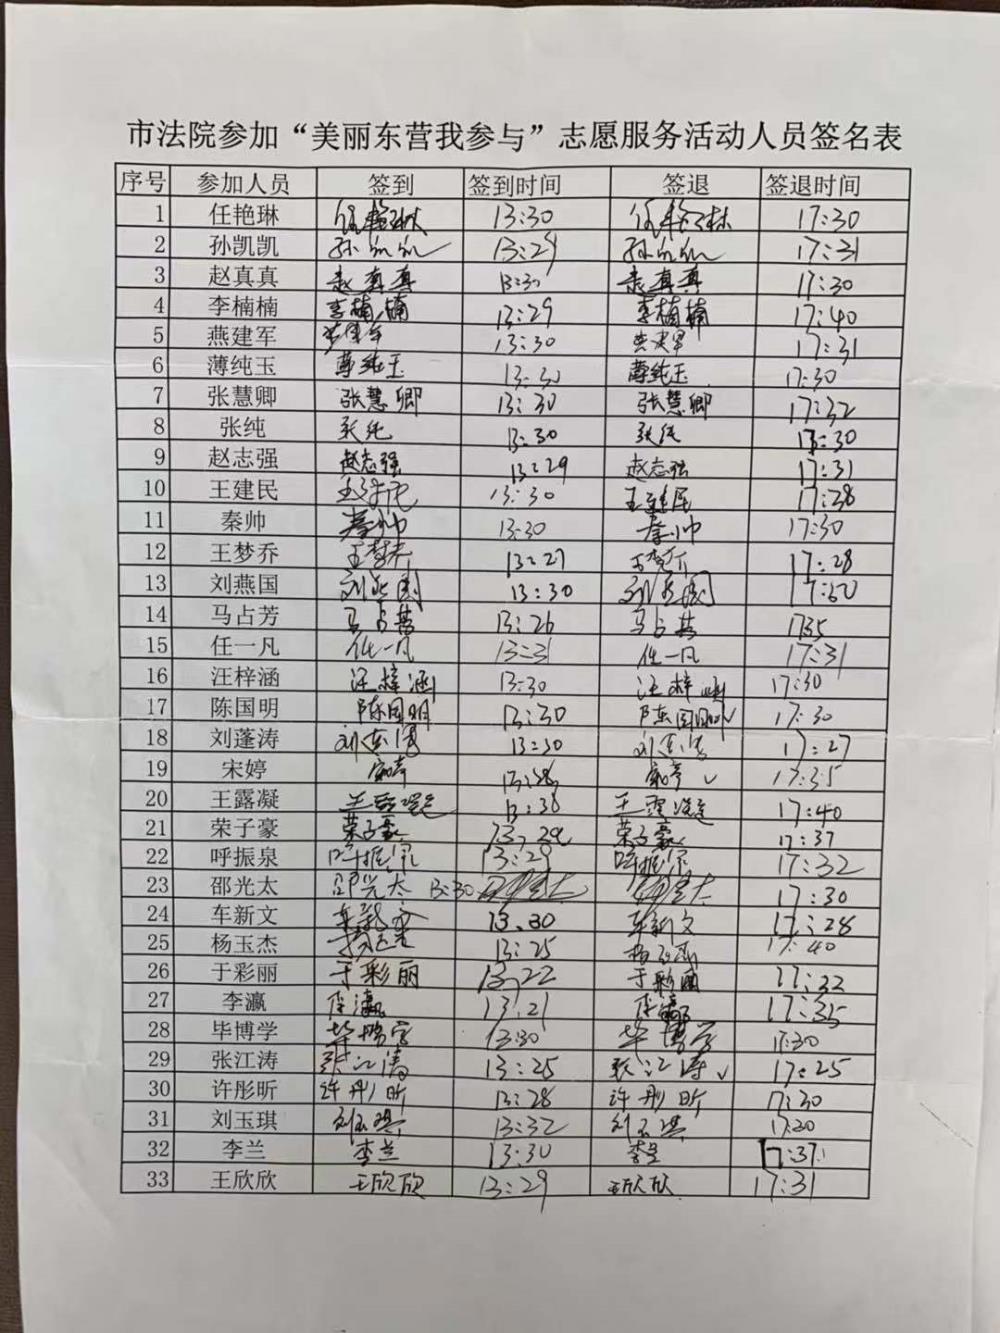 市法院参加“美丽东营我参与”志愿服务活动人员签名表
序号 参加人员 签到 签到时间 签退 签退时间
1 任艳琳 任艳琳 13:30 任艳琳 17:30
2 孙凯凯 孙凯凯 13:29 孙凯凯 17:31
3 赵真真 赵真真 13:30 赵真真 17:30
4 李楠楠 李楠楠 13:29 李楠楠 17:40
5 燕建军 13:30 17:31
6 薄纯玉 薄纯玉 13:30 薄纯玉 17:30
7 张慧卿 张慧卿 13:30 张慧卿 17:32
8 张纯 张纯 13:30 张纯 17:30
9 赵志强 赵志强 13:29 赵志强 17:31
10 王建民 王建民 13:30 王建民 17:28
11 秦帅 秦帅 13:30 秦帅 17:30
12 王梦乔 王梦乔 13:27 王梦乔 17:28
13 刘燕国 刘燕国 13:30 刘燕国 17:30
14 马占芳 马占芳 13:26 马占芳 1735
15 任一凡 任一凡 13:31 任一凡 17:31
16 汪梓涵 汪梓涵 13:30 汪梓涵 17:30
17 陈国明 陈国明 13:30 陈国明 17:30
18 刘蓬涛 刘蓬涛 13:30 刘蓬涛 17:27
19 宋婷 宋婷 宋婷 17:35
20 王露凝 王露凝 王露凝 17:40
21 荣子豪 荣子豪 荣子豪 17:37
22 呼振泉 呼振泉 13:29 呼振泉 17:32
23 邵光太 邵光太 13:30 邵光太 17:30
24 车新文 车新文 13.30 车新文 17:28
25 杨玉杰 杨玉杰 13:25 杨玉杰 17:40
26 于彩丽 于彩丽 13:22 于彩丽 17:32
27 李瀛 李瀛 13:21 李瀛 17:35
28 毕博学 毕博学 13:30 毕博学 17:30
29 张江涛 张江涛 13:25 张江涛 17:25
30 许彤昕 许彤昕 13:28 许彤昕 17:30
31 刘玉琪 刘玉琪 13:32 刘玉琪 17:30
32 李兰 李兰 13:30 李兰 17:37
33 王欣欣 王欣欣 13:29 王欣欣 17:31